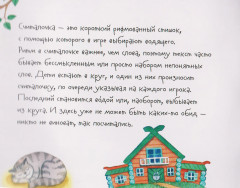 Считалочка — это короткий рифмованный стишок,
с помощью которого в игре выбирают водящего.
Ритм в считалочке важнее, чем слова, поэтому текст часто
бывает бессмысленным или просто набором непонятных
слов. Дети встают в круг, и один из них произносит
считалочку, по очереди указывая на каждого игрока.
Последний становится водой или, наоборот, выбывает
из круга. И здесь уже не может быть каких-то обид —
никто не виноват, так посчитались.